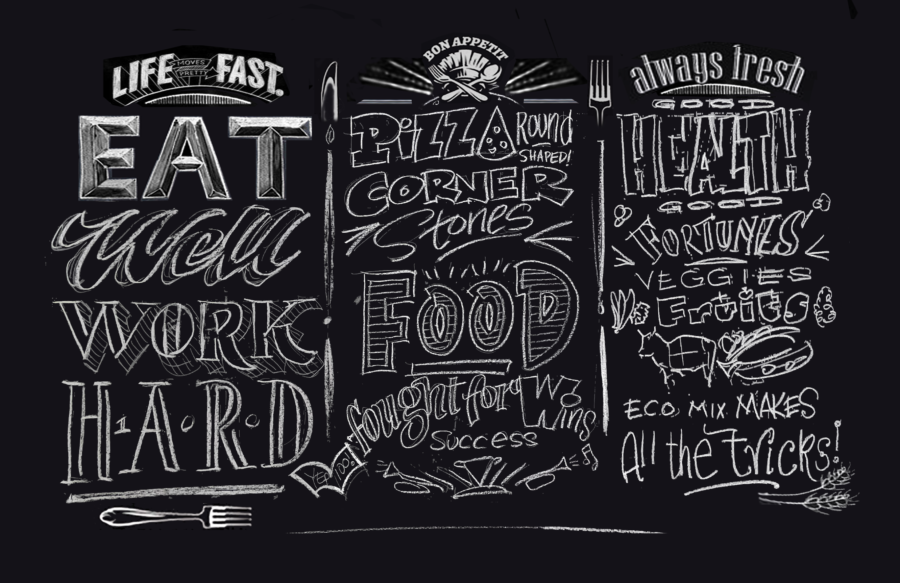 LIFE MOVES PRETTY FAST.
EAT
Well
WORK
H·A·R·D
BON APPETIT
PiZZA Round
SHAPED!
CORNER
Stones
FOOD
fought for
Wins
Success
always fresh
GOOD
HEALTH
GOOD
FORTUNES
VEGGIES
Fruits
ECO MIX MAKES
All the tricks!